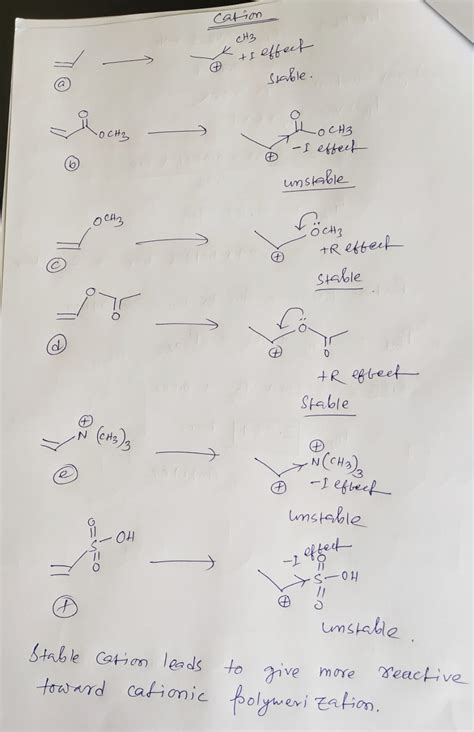 Cation
CH3
+I effect
Stable.
(a)
O
OCH3
(b)
O
OCH3
⊕
-I effect
unstable
OCH3
(c)
ÖCH3
⊕
+R effect
Stable
O
O
(d)
Ö
⊕ O
+R effect
Stable
⊕
N(CH3)3
(e)
⊕
N(CH3)3
⊕ -I effect
Unstable
O
S-OH
O
(f)
-I effect
O
S-OH
⊕ O
Unstable.
Stable cation leads to give more reactive
toward cationic polymerization.